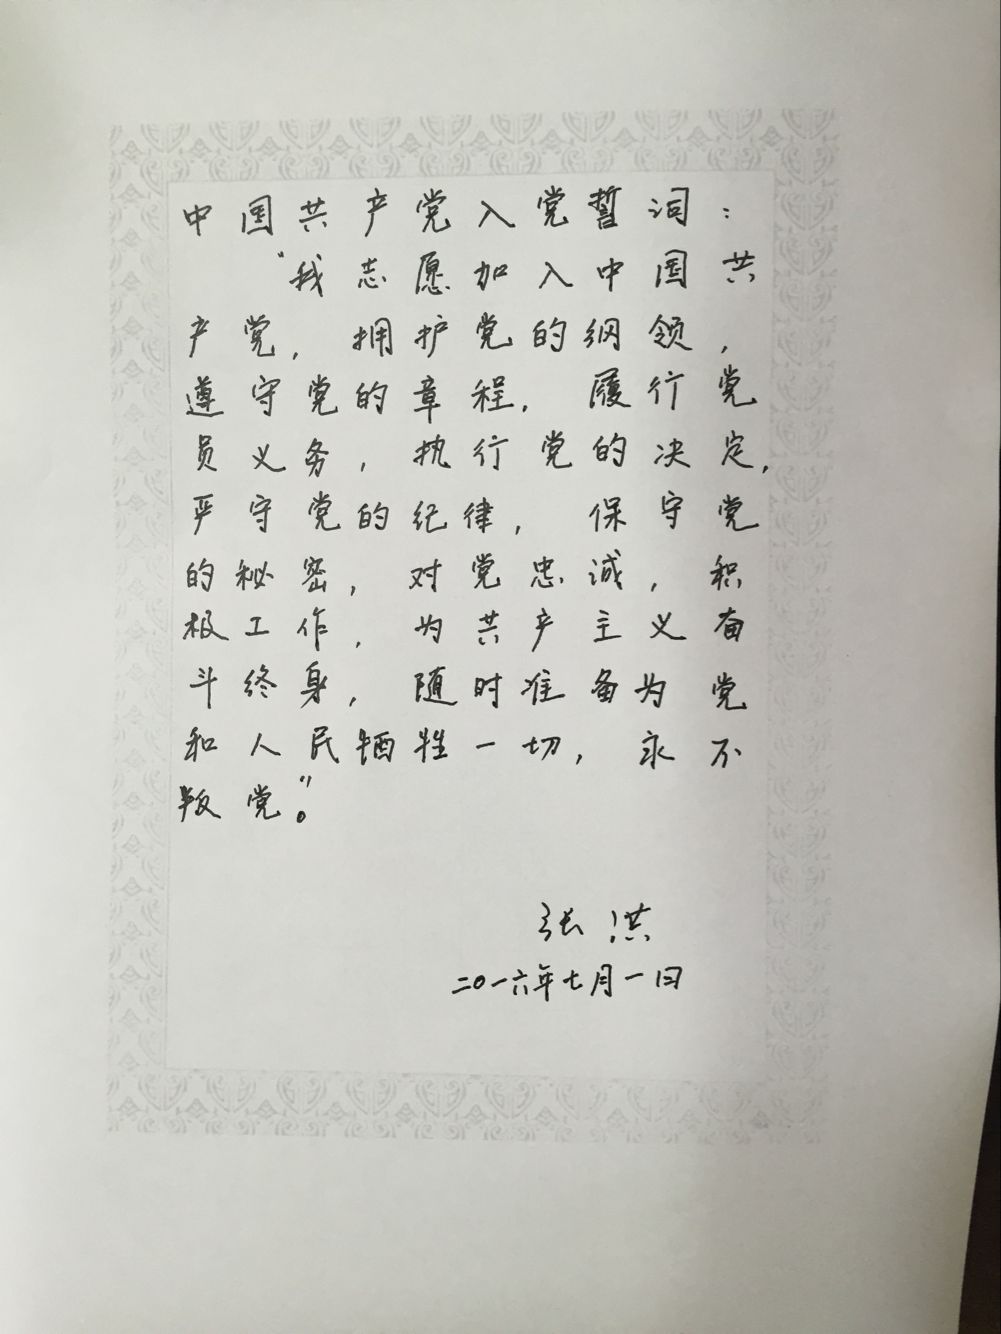 中国共产党入党誓词：
“我志愿加入中国共
产党，拥护党的纲领，
遵守党的章程，履行党
员义务，执行党的决定，
严守党的纪律，保守党
的秘密，对党忠诚，积
极工作，为共产主义奋
斗终身，随时准备为党
和人民牺牲一切，永不
叛党”。
张洪
二〇一六年七月一日